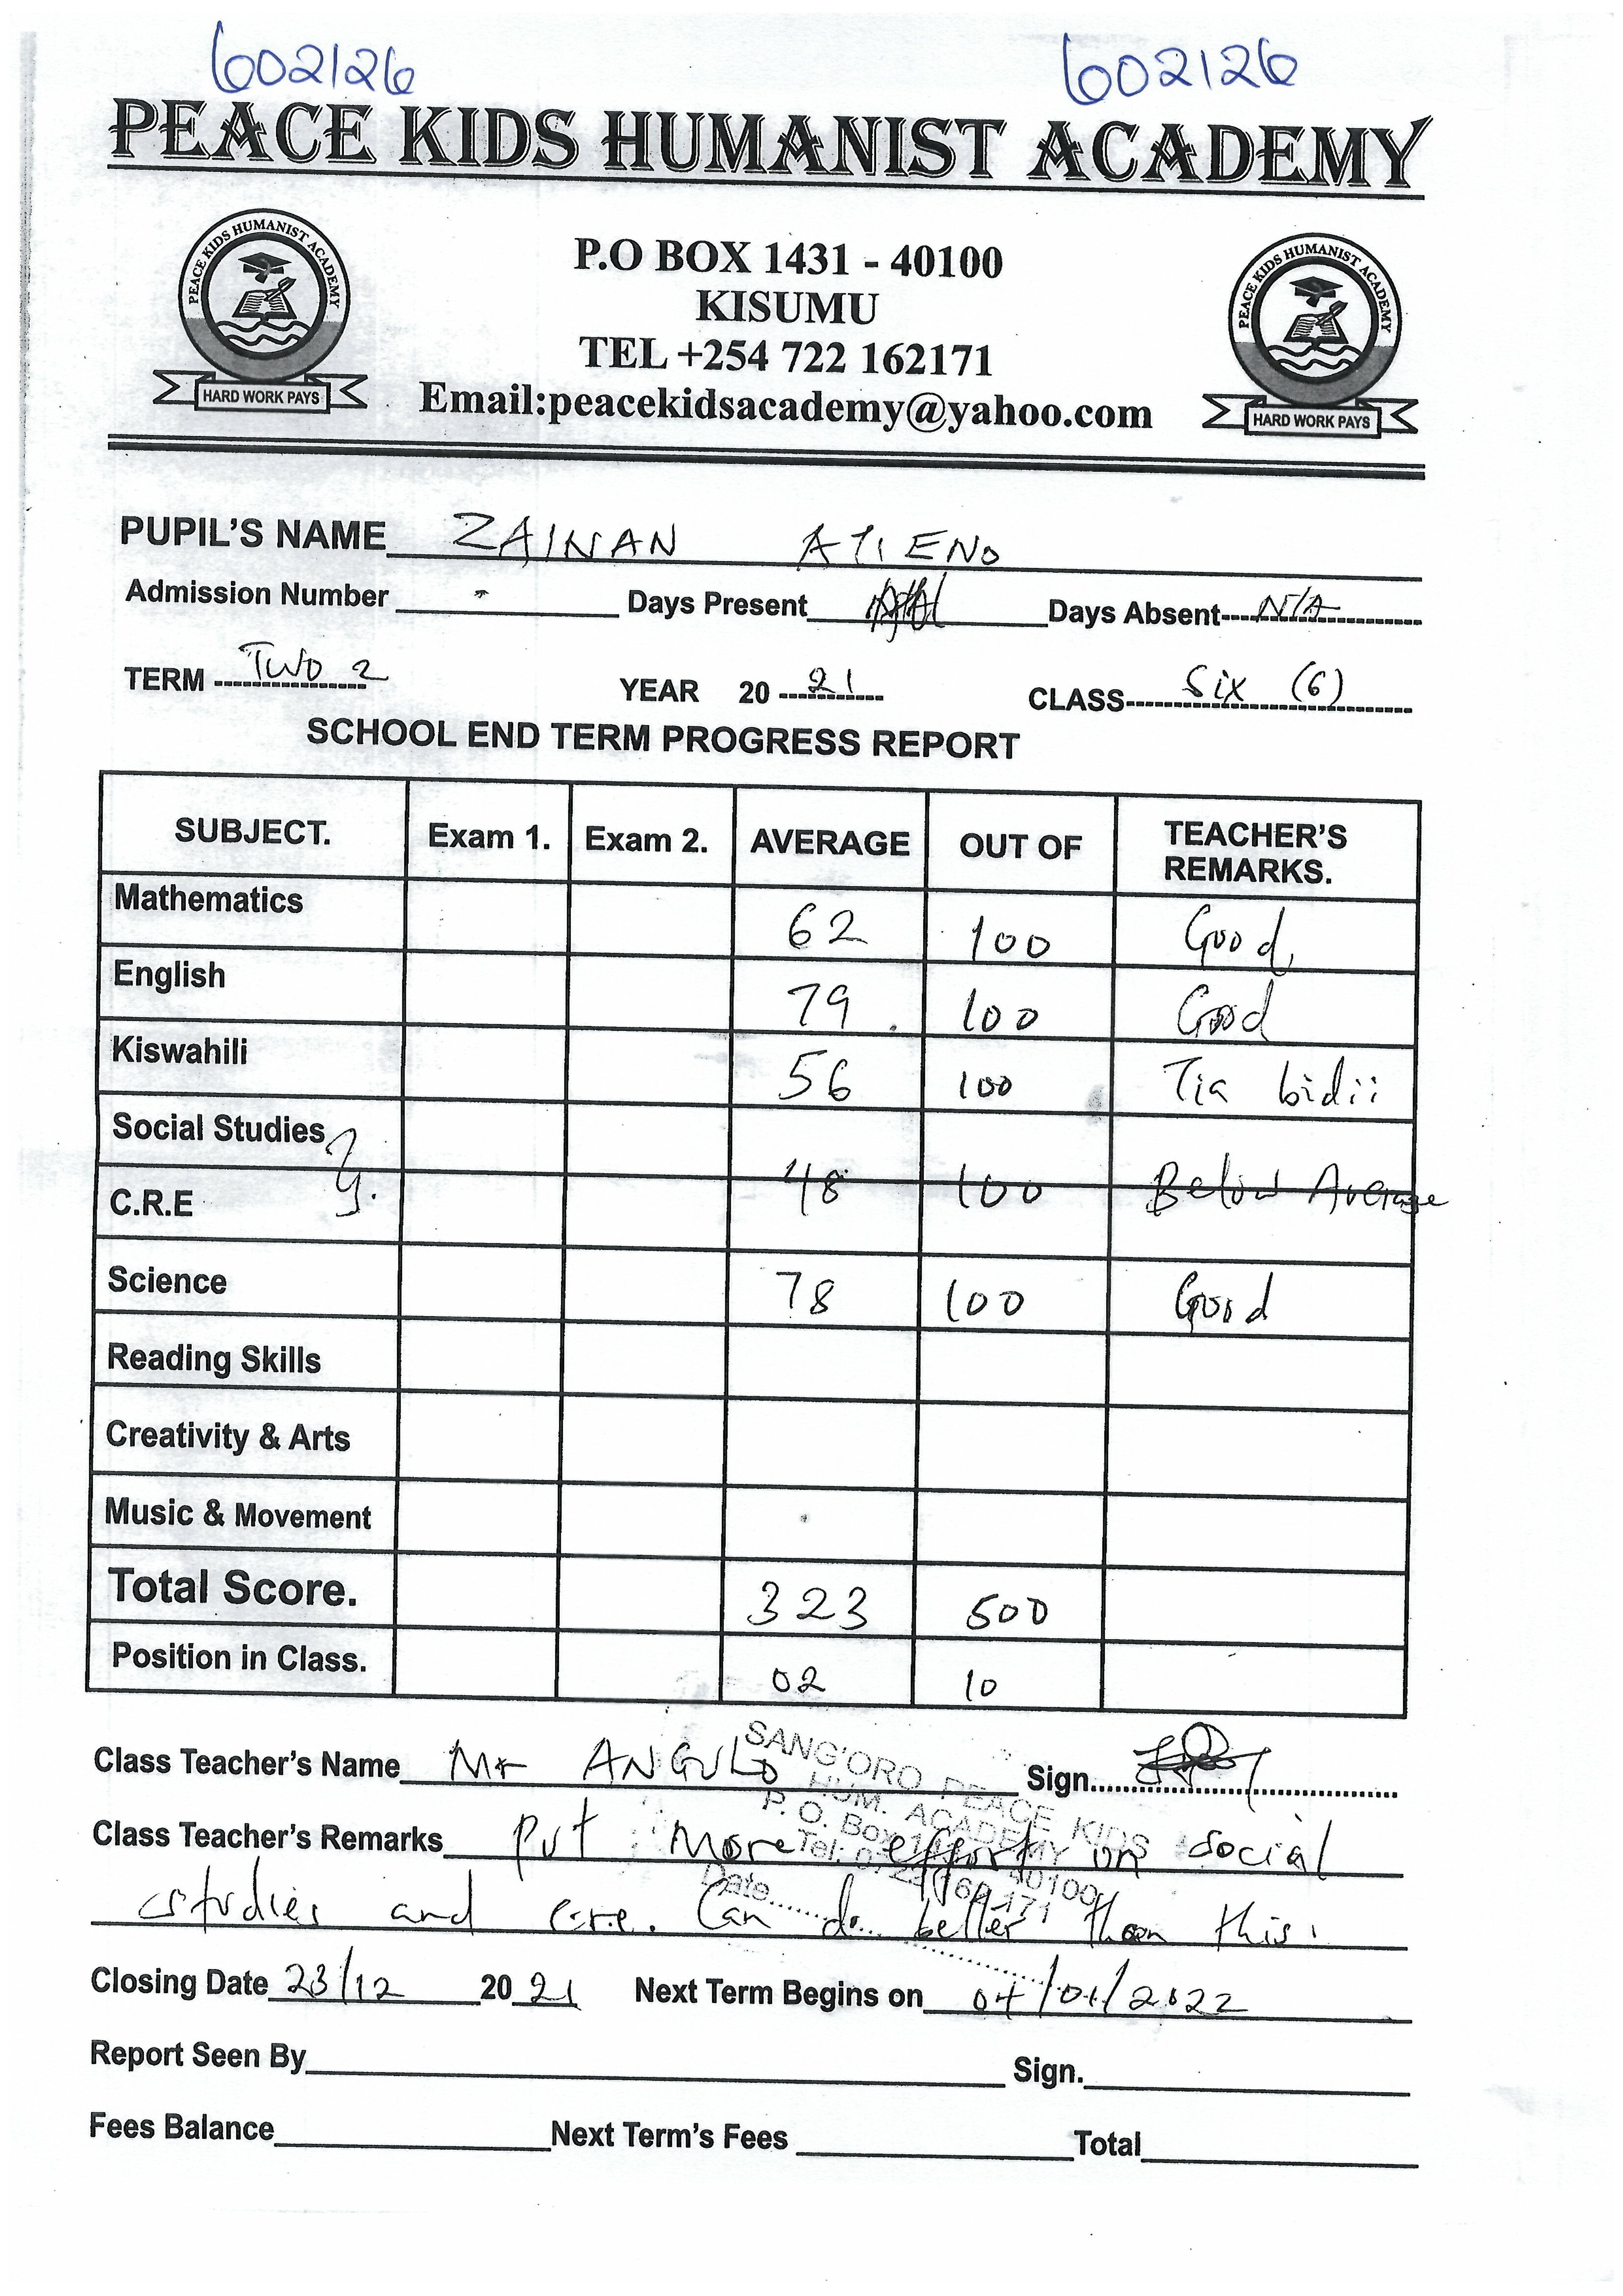 602126 602126
PEACE KIDS HUMANIST ACADEMY
PEACE KIDS HUMANIST ACADEMY
HARD WORK PAYS
P.O BOX 1431 - 40100
KISUMU
TEL +254 722 162171
Email:peacekidsacademy@yahoo.com
PEACE KIDS HUMANIST ACADEMY
HARD WORK PAYS
PUPIL'S NAME ZAINAN ATIENO
Admission Number - Days Present Days Absent N/A
TERM TWO 2 YEAR 20 21 CLASS Six (6)
SCHOOL END TERM PROGRESS REPORT
SUBJECT. Exam 1. Exam 2. AVERAGE OUT OF TEACHER'S REMARKS.
Mathematics 62 100 Good
English 79 100 Good
Kiswahili 56 100 Tia bidii
Social Studies
C.R.E 48 100 Below Average
Science 78 100 Good
Reading Skills
Creativity & Arts
Music & Movement
Total Score. 323 500
Position in Class. 02 10
Class Teacher's Name Mr ANGULO Sign
SANG'ORO PEACE KIDS
HUM. ACADEMY
P. O. Box 40100
Tel: 0722 162 171
Date
Class Teacher's Remarks put more effort on social
studies and c.r.e. Can do better than this.
Closing Date 23/12 20 21 Next Term Begins on 04/01/2022
Report Seen By Sign.
Fees Balance Next Term's Fees Total